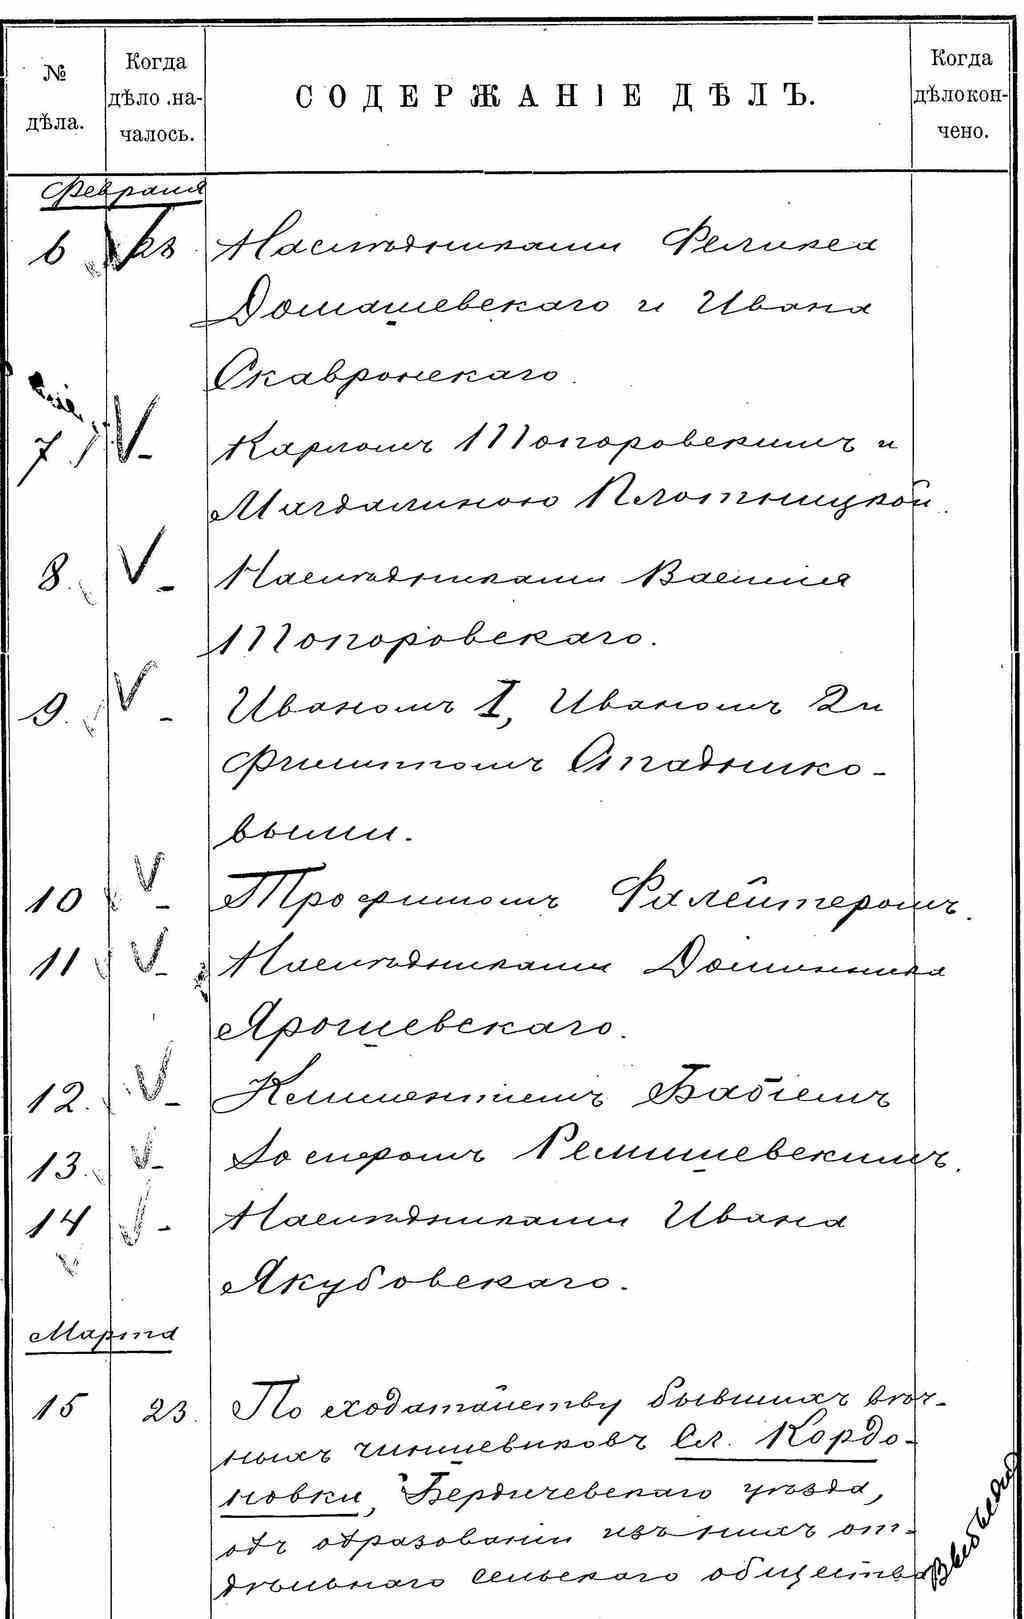 № дѣла.
Когда дѣло на-
чалось.
СОДЕРЖАНІЕ ДѢЛЪ.
Когда дѣло кон-
чено.
Февраля
6 23. Наслѣдниками Феликса
Домашевскаго и Ивана
Скавронскаго.
7. - Карломъ Топоровскимъ и
Магдалиною Плотницкой.
8. - Наслѣдниками Василія
Топоровскаго.
9. - Иваномъ I, Иваномъ 2 и
Филиппомъ Спаднико-
выми.
10 - Трофимомъ Фалейтеромъ.
11 - Наслѣдниками Доминика
Ярошевскаго.
12. - Климентіемъ Бабіемъ
13. - Іосифомъ Ремишевскимъ.
14 - Наслѣдниками Ивана
Якубовскаго.
Марта
15 23. По ходатайству бывшихъ вѣч-
ныхъ чиншевиковъ Сл. Кордо-
новки, Бердичевскаго уѣзда,
объ образованіи изъ нихъ от-
дѣльнаго сельскаго общества